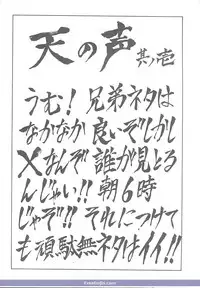 天の声 其ノ壱
うむ! 兄弟ネタは
なかなか良いぞしかし
メなんぞ誰が見とる
んじゃい!! 朝6時
じゃぞ!! それにつけて
も頑駄無ネタはイイ!!